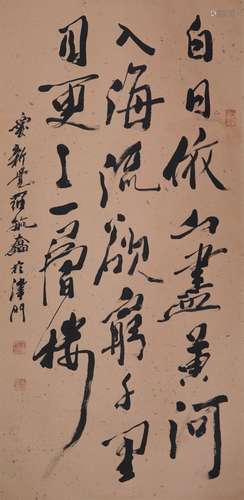 白日依山盡黃河
入海流欲窮千里
目更上一層樓
愛新覺羅毓於津門